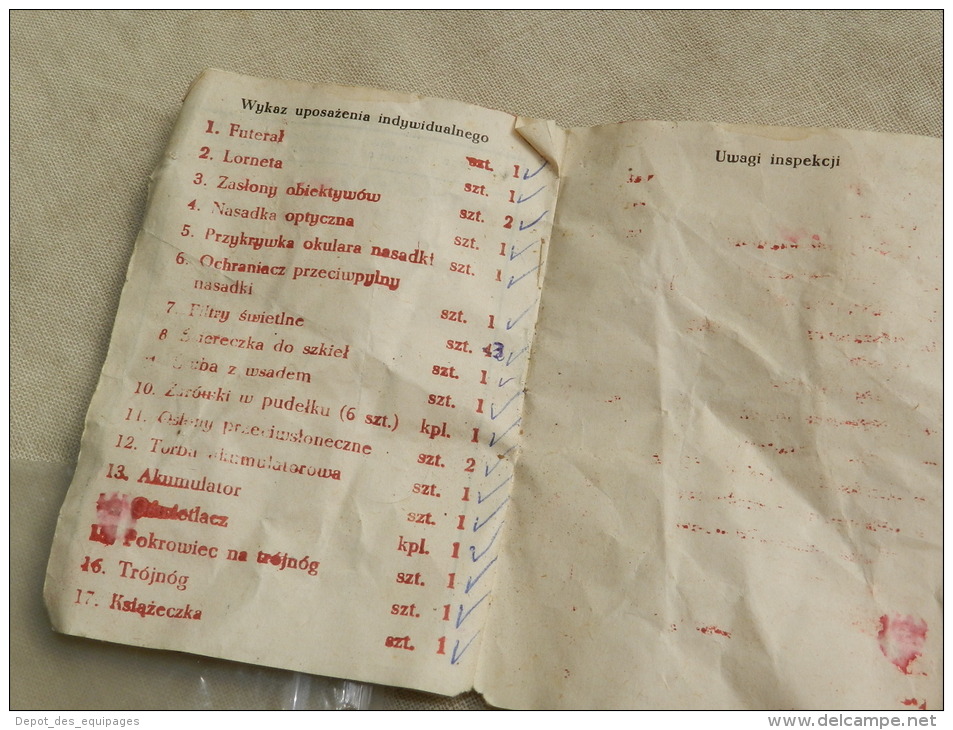 Wykaz uposażenia indywidualnego
1. Futerał szt. 1
2. Lorneta szt. 1
3. Zasłony obiektywów szt. 2
4. Nasadka optyczna szt. 1
5. Przykrywka okulara nasadki szt. 1
6. Ochraniacz przeciwpylny
nasadki szt. 1
7. Filtry świetlne szt. 3
8 Ściereczka do szkieł szt. 1
z wsadem szt. 1
10. Żarówki w pudełku (6 szt.) kpl. 1
11. Osłony przeciwsłoneczne szt. 2
12. Torba akumulatorowa szt. 1
13. Akumulator szt. 1
Oświetlacz kpl. 1
15. Pokrowiec na trójnóg szt. 1
16. Trójnóg szt. 1
17. Książeczka szt. 1
Uwagi inspekcji
Depot_des_equipages
www.delcampe.net